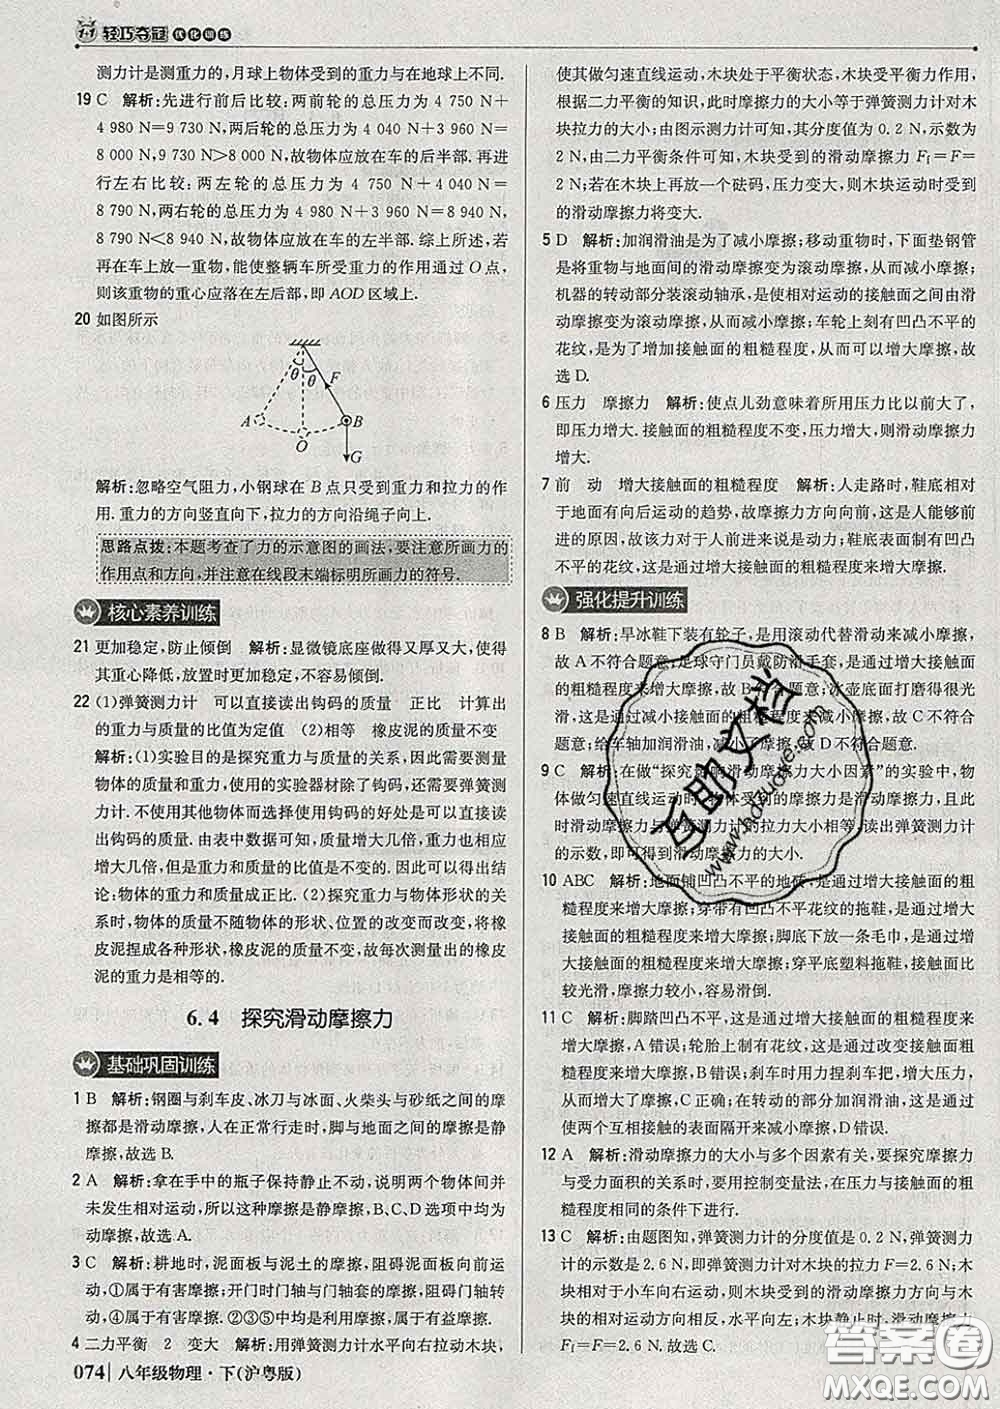 1+1 轻巧夺冠 优化训练
测力计是测重力的,月球上物体受到的重力与在地球上不同.
19 C 解析:先进行前后比较:两前轮的总压力为 4 750 N+
4 980 N=9 730 N,两后轮的总压力为 4 040 N+3 960 N=
8 000 N,9 730 N>8 000 N,故物体应放在车的后半部.再进
行左右比较:两左轮的总压力为 4 750 N+4 040 N=
8 790 N,两右轮的总压力为 4 980 N+3 960 N=8 940 N,
8 790 N<8 940 N,故物体应放在左半部.综上所述,若
再在车上放一重物,能使整辆车所受重力的作用线通过 O 点,
则该重物的重心应落在左后部,即 AOD 区域上.
20 如图所示
θ θ F
A B
O
G
解析:忽略空气阻力,小钢球在 B 点只受到重力和拉力的作
用.重力的方向竖直向下,拉力的方向沿绳子向上.
思路点拨:本题考查了力的示意图的画法,要注意所画力的
作用点和方向,并注意在线段末端标明所画力的符号.
核心素养训练
21 更加稳定,防止倾倒 解析:显微镜底座做得又厚又大,使
其重心降低,放置时更加稳定,不容易倾倒.
22 (1)弹簧测力计 可以直接读出钩码的质量 正比 计算出
的重力与质量的比值为定值 (2)相等 橡皮泥的质量不变
解析:(1)实验目的是探究重力与质量的关系,故需要测量
物体的质量和重力.使用的实验器材除了钩码,还有弹簧测
力计.不用石块而选择使用钩码的好处是可以直接读
出钩码的质量.由表中数据可知,质量增大几倍,重力也增
大几倍,但是重力和质量的比值是不变的.因此可以得出结
论:物体的重力和质量成正比.(2)探究重力与物体形状的
关系时,物体的质量不随物体的形状、位置的改变而改变,将
橡皮泥捏成各种形状,橡皮泥的质量不变,故每次测量出的橡皮
泥的重力是相等的.
6.4 探究滑动摩擦力
基础巩固训练
1 B 解析:钢圈与刹车皮、冰刀与冰面、火柴头与砂纸之间的摩
擦都是滑动摩擦,人在正常行走时,脚与地面之间的摩擦是静
摩擦,故选 B.
2 A 解析:拿在手中的瓶子保持静止不动,说明两个物体间并
未发生相对运动,所以这种摩擦是静摩擦,B、C、D 选项中均为
滑动摩擦,故选 A.
3 C 解析:耕地时,泥面板与泥土的摩擦,阻碍泥面板向前运
动,①属于有害摩擦;开门时门轴与门轴套的摩擦,阻碍门转
动,④属于有害摩擦.②③⑤中均是利用摩擦,属于有益摩擦.
4 二力平衡 2 变大 解析:用弹簧测力计水平向右拉动木块,
074 八年级物理·下(沪粤版)
使其做匀速直线运动,木块处于平衡状态,木块受平衡力作用,
根据二力平衡的知识,此时摩擦力的大小等于弹簧测力计对木
块拉力的大小;由图示测力计可知,其分度值为 0.2 N,示数为
2 N,由二力平衡条件可知,木块受到的滑动摩擦力 Ff=F=
2 N;若在木块上再放一个砝码,压力变大,则木块运动时受到
的滑动摩擦力将变大.
5 D 解析:加润滑油是为了减小摩擦;移动重物时,下面垫钢管
是将重物与地面间的滑动摩擦变为滚动摩擦,从而减小摩擦;
机器的转动部分装滚动轴承,是使相对运动的接触面之间由滑
动摩擦变为滚动摩擦,从而减小摩擦;车轮上刻有凹凸不平的
花纹,是为了增加接触面的粗糙程度,从而可以增大摩擦,故
选 D.
6 压力 摩擦力 解析:使点儿劲意味着所用压力比以前大了,
即压力增大.接触面的粗糙程度不变,压力增大,则摩擦力
增大.
7 前 动 增大接触面的粗糙程度 解析:人走路时,鞋底相对
于地面有向后运动的趋势,故摩擦力方向向前,这是人能够前
进的原因,故该力对于人前进来说是动力.鞋底表面制有凹凸
不平的花纹,这是通过增大接触面的粗糙程度来增大摩擦.
强化提升训练
8 B 解析:旱冰鞋下装有轮子,是用滚动代替滑动来减小摩擦,
故 A 不符合题意;足球守门员戴防滑手套,是通过增大接触面
的粗糙程度来增大摩擦,故 B 符合题意;冰壶底面打磨得很光
滑,这是通过减小接触面的粗糙程度来减小摩擦,故 C 不符合
题意;给车轴加润滑油,是减小了摩擦,故 D 不符合题意.
9 C 解析:在做“探究影响滑动摩擦力大小因素”的实验中,物
体做匀速直线运动时,物体受到的摩擦力是滑动摩擦力,且此
时滑动摩擦力与弹簧测力计的拉力大小相等,读出弹簧测力计
的示数,即可得到滑动摩擦力的大小.
10 ABC 解析:地面铺凹凸不平的地砖,是通过增大接触面的粗
糙程度来增大摩擦;穿带有凹凸不平花纹的拖鞋,是通过增大
接触面的粗糙程度来增大摩擦;脚底下放一条毛巾,是通过增
大接触面的粗糙程度来增大摩擦;穿平底塑料拖鞋,接触面比
较光滑,摩擦较小,容易滑倒.
11 C 解析:脚踏凹凸不平,这是通过增大接触面的粗糙程度来增大
摩擦,A 错误;轮胎上制有花纹,这是通过增大接触面的粗糙程
度来增大摩擦,B 错误;刹车时用力捏刹车把,是通过增大压力,
从而增大摩擦,C 正确;在转动的部分加润滑油,是通过使
两个互相接触的表面隔开来减小摩擦,D 错误.
12 A 解析:滑动摩擦力的大小与多个因素有关,要探究摩擦力
与受力面积的关系,要用控制变量法,在压力与接触面的粗
糙程度相同的条件下进行.
13 C 解析:由题图知,弹簧测力计的分度值是 0.2 N,弹簧测力
计的示数是 2.6 N,即弹簧测力计对木块的拉力 F=2.6 N;木块
相对于小车向右运动,木块受到的滑动摩擦力方向与木
块相对于小车的运动方向相反,即水平向左,木块静止,处
于平衡状态,由平衡条件得,木块受到的滑动摩擦力
f=F=2.6 N,故选 C.
互助文档
www.hdzuoye.com
答案圈
MXQE.COM